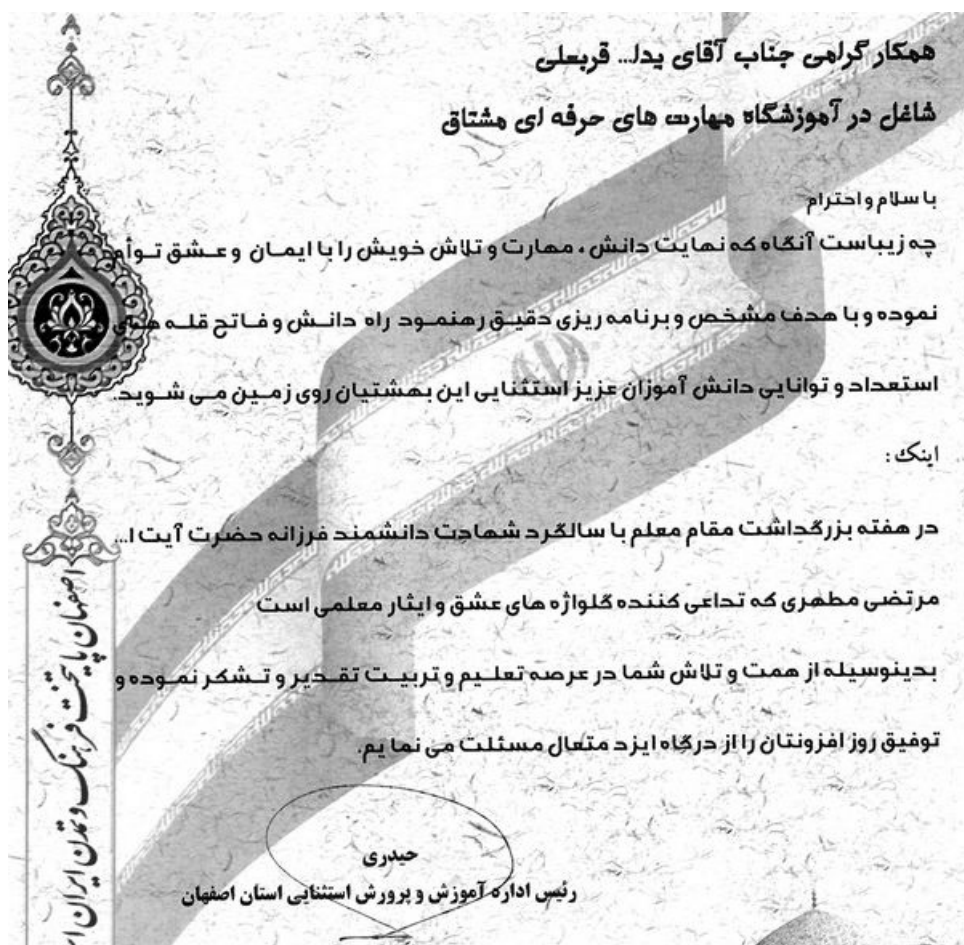 همکار گرامی جناب آقای یدا... قربعلی
شاغل در آموزشگاه مهارت های حرفه ای مشتاق
با سلام و احترام
چه زیباست آنگاه که نهایت دانش ، مهارت و تلاش خویش را با ایمان و عشق توأم
نموده و با هدف مشخص و برنامه ریزی دقیق رهنمود راه دانش و فاتح قله های
استعداد و توانایی دانش آموزان عزیز استثنایی این بهشتیان روی زمین می شوید.
اینک :
در هفته بزرگداشت مقام معلم با سالگرد شهادت دانشمند فرزانه حضرت آیت ا...
مرتضی مطهری که تداعی کننده گلواژه های عشق و ایثار معلمی است
بدینوسیله از همت و تلاش شما در عرصه تعلیم و تربیت تقدیر و تشکر نموده و
توفیق روز افزونتان را از درگاه ایزد متعال مسئلت می نما یم.
حیدری
رئیس اداره آموزش و پرورش استثنایی استان اصفهان
اصفهان پایتخت فرهنگ و تمدن ایران